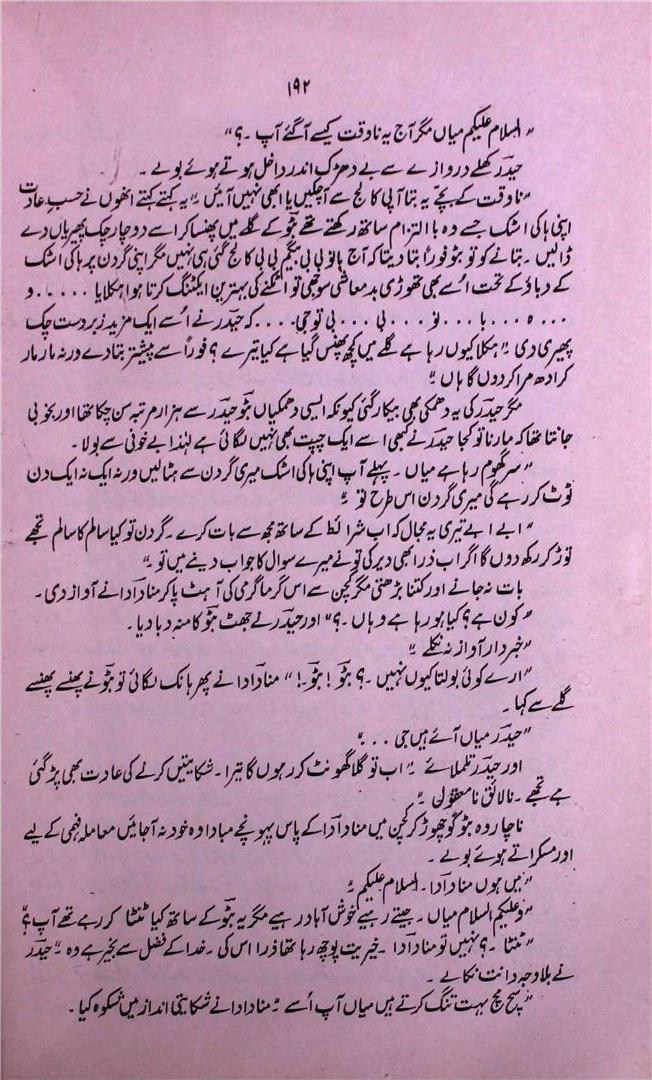 ۱۹۲
"السلام علیکم میاں مگر آج یہ ناوقت کیسے آگئے آپ ۔؟"
حیدر کھلے دروازے سے بے دھڑک اندر داخل ہوتے ہوئے بولے ۔
"ناوقت کے بچے یہ بتا آپی کالج سے آچکیں یا ابھی نہیں آئیں ۔" یہ کہتے کہتے انھوں نے حسب عادت
اپنی ہاکی اسٹک جسے وہ بالتزام ساتھ رکھتے تھے بٹو کے گلے میں پھنسا کر اسے دو چار چک پھیریاں دے
ڈالیں ۔ بتانے کو تو بٹو فوراً بتا دیتا کہ آج بانو بی بی بیگم بی بی کالج گئی ہی نہیں مگر اپنی گردن پر ہاکی اسٹک
کے دباؤ کے تحت اُسے بھی تھوڑی بدمعاشی سوجھی تو اٹکنے کی بہترین ایکٹنگ کرتا ہوا ہکلایا ..... و
... ہ ... با ... نو ... بی ... بی تو جی ... کہ حیدر نے اُسے ایک مزید زبردست چک
پھیری دی ۔" ہکلا کیوں رہا ہے گلے میں کچھ پھنس گیا ہے کیا تیرے ؟ فوراً سے پیشتر بتا دے ورنہ مار مار
کر ادھ مرا کر دوں گا ہاں ۔"
مگر حیدر کی یہ دھمکی بھی بیکار گئی کیونکہ ایسی دھمکیاں بٹو حیدر سے ہزار مرتبہ سن چکا تھا اور بخوبی
جانتا تھا کہ مارنا تو کجا حیدر نے کبھی اسے ایک چپت بھی نہیں لگائی ہے لہٰذا بے خوفی سے بولا ۔
"سر گھوم رہا ہے میاں ۔ پہلے آپ اپنی ہاکی اسٹک میری گردن سے ہٹا لیں ورنہ ایک نہ ایک دن
ٹوٹ کر رہے گی میری گردن اس طرح تو ۔"
"ابے ابے تیری یہ مجال کہ اب شرائط کے ساتھ مجھ سے بات کرے ۔ گردن تو کیا سالم کا سالم تجھے
توڑ کر رکھ دوں گا اگر اب ذرا بھی دیر کی تو نے میرے سوال کا جواب دینے میں تو ۔"
بات نہ جانے اور کتنا بڑھتی مگر کچن سے اس گرما گرمی کی آہٹ پا کر منا دادا نے آواز دی ۔
"کون ہے؟ کیا ہو رہا ہے وہاں ۔؟" اور حیدر نے جھٹ بٹو کا منہ دبا دیا ۔
"خبردار آواز نہ نکلے ۔"
"ارے کوئی بولتا کیوں نہیں ۔؟ بٹو ! بٹو ۔!" منا دادا نے پھر ہانک لگائی تو بٹو نے پھنسے پھنسے
گلے سے کہا ۔
"حیدر میاں آئے ہیں جی ..."
اور حیدر تلملائے ۔" اب تو گلا گھونٹ کر رہوں گا تیرا ۔ شکایتیں کرنے کی عادت بھی پڑ گئی
ہے تجھے ۔ نالائق نامعقول ۔"
ناچار وہ بٹو کو چھوڑ کر کچن میں منا دادا کے پاس پہونچے مبادا وہ خود نہ آجائیں معاملہ فہمی کے لیے
اور مسکراتے ہوئے بولے ۔
"میں ہوں منا دادا ۔ السلام علیکم ۔"
"وعلیکم السلام میاں ۔ جیتے رہیے خوش آباد رہیے مگر یہ بٹو کے ساتھ کیا ٹنٹا کر رہے تھے آپ ؟"
"ٹنٹا ۔؟ نہیں تو منا دادا ۔ خیریت پوچھ رہا تھا ذرا اس کی ۔ خدا کے فضل سے بخیر ہے وہ ۔" حیدر
نے بلاوجہ دانت نکالے ۔
"سچ مچ بہت تنگ کرتے ہیں میاں آپ اُسے ۔" منا دادا نے شکایتی انداز میں شکوہ کیا ۔